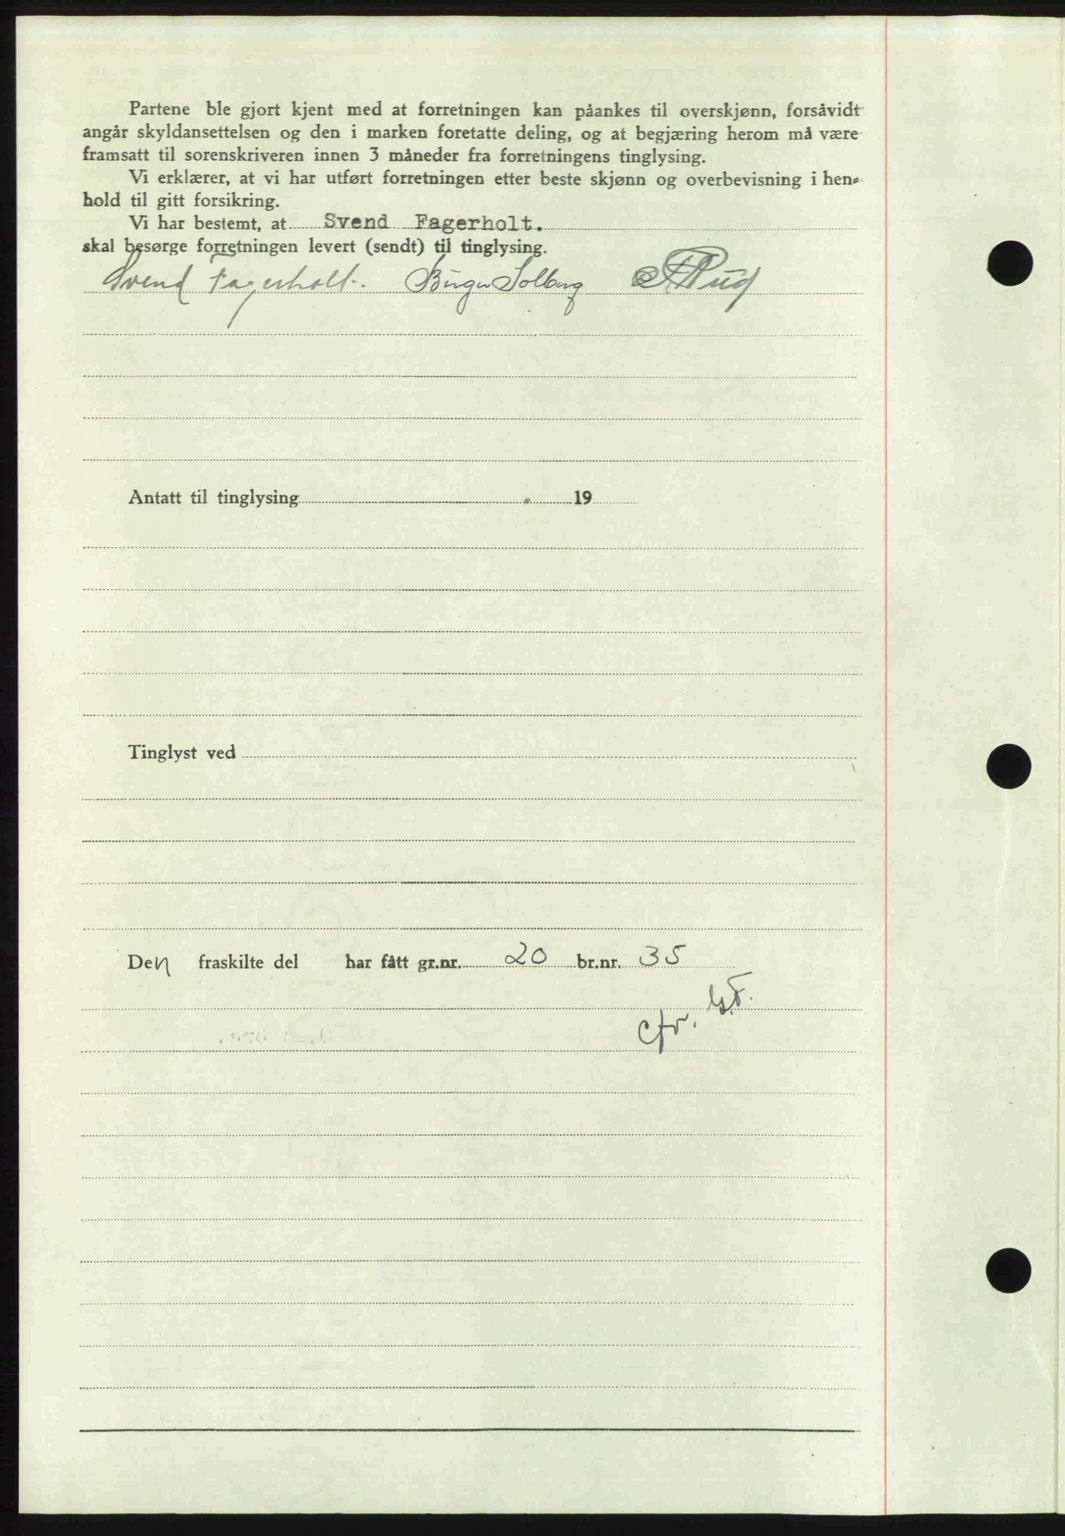 Partene ble gjort kjent med at forretningen kan påankes til overskjønn, forsåvidt
angår skyldansettelsen og den i marken foretatte deling, og at begjæring herom må være
framsatt til sorenskriveren innen 3 måneder fra forretningens tinglysing.
Vi erklærer, at vi har utført forretningen etter beste skjønn og overbevisning i hen-
hold til gitt forsikring.
Vi har bestemt, at Svend Fagerholt.
skal besørge forretningen levert (sendt) til tinglysing.
Svend Fagerholt. Birger Solberg Rud
Antatt til tinglysing . 19
Tinglyst ved
Den fraskilte del har fått gr.nr. 20 br.nr. 35
cfr.